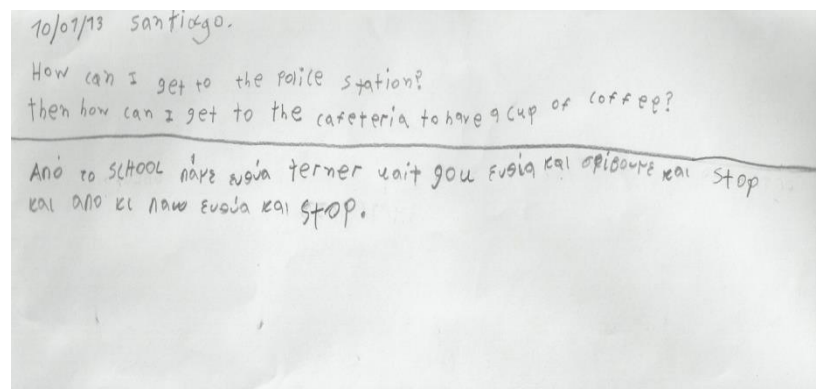 10/01/13 santiago.
How can I get to the police station?
then how can I get to the cafeteria to have a cup of coffee?
Από το SCHOOL πάμε ευθύα terner και gou ευθία και στρίβουμε και stop
και απο κι παω ευθύα και stop.